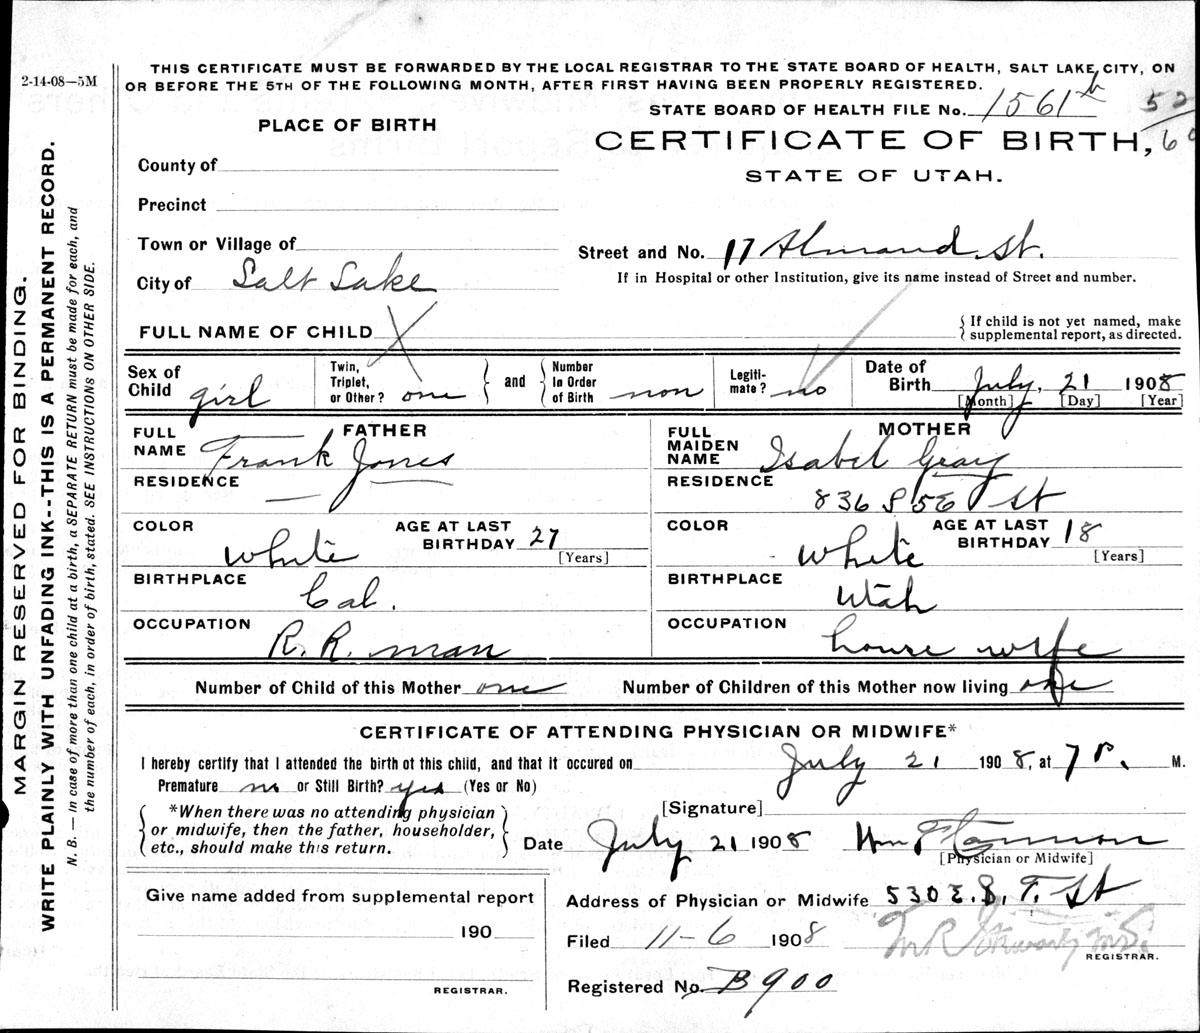 2-14-08—5M
THIS CERTIFICATE MUST BE FORWARDED BY THE LOCAL REGISTRAR TO THE STATE BOARD OF HEALTH, SALT LAKE CITY, ON
OR BEFORE THE 5TH OF THE FOLLOWING MONTH, AFTER FIRST HAVING BEEN PROPERLY REGISTERED.
STATE BOARD OF HEALTH FILE No. 1561 b 52
PLACE OF BIRTH
CERTIFICATE OF BIRTH,
STATE OF UTAH.
County of
Precinct
Town or Village of
Street and No. 17 Almand St.
City of Salt Lake
If in Hospital or other Institution, give its name instead of Street and number.
FULL NAME OF CHILD
{ If child is not yet named, make
supplemental report, as directed.
Sex of Child girl
Twin, Triplet, or Other? one
and
Number In Order of Birth non
Legiti-mate? no
Date of Birth July, 21 1908
[Month] [Day] [Year]
FATHER
FULL NAME Frank Jones
RESIDENCE
COLOR White
AGE AT LAST BIRTHDAY 27
[Years]
BIRTHPLACE Cal.
OCCUPATION R. R. man
MOTHER
FULL MAIDEN NAME Isabel Gray
RESIDENCE 836 S 5E St
COLOR White
AGE AT LAST BIRTHDAY 18
[Years]
BIRTHPLACE Utah
OCCUPATION house wife
Number of Child of this Mother one Number of Children of this Mother now living one
CERTIFICATE OF ATTENDING PHYSICIAN OR MIDWIFE*
I hereby certify that I attended the birth of this child, and that it occured on July 21 1908, at 7 P. M.
Premature no or Still Birth? yes (Yes or No)
*When there was no attending physician
or midwife, then the father, householder,
etc., should make this return.
[Signature]
Date July 21 1908 Wm
[Physician or Midwife]
Give name added from supplemental report
190
REGISTRAR.
Address of Physician or Midwife 530 E. S. T. St
Filed 11-6 1908 M.D.
REGISTRAR.
Registered No. B900
MARGIN RESERVED FOR BINDING.
WRITE PLAINLY WITH UNFADING INK--THIS IS A PERMANENT RECORD.
N. B. — In case of more than one child at a birth, a SEPARATE RETURN must be made for each, and
the number of each, in order of birth, stated. SEE INSTRUCTIONS ON OTHER SIDE.